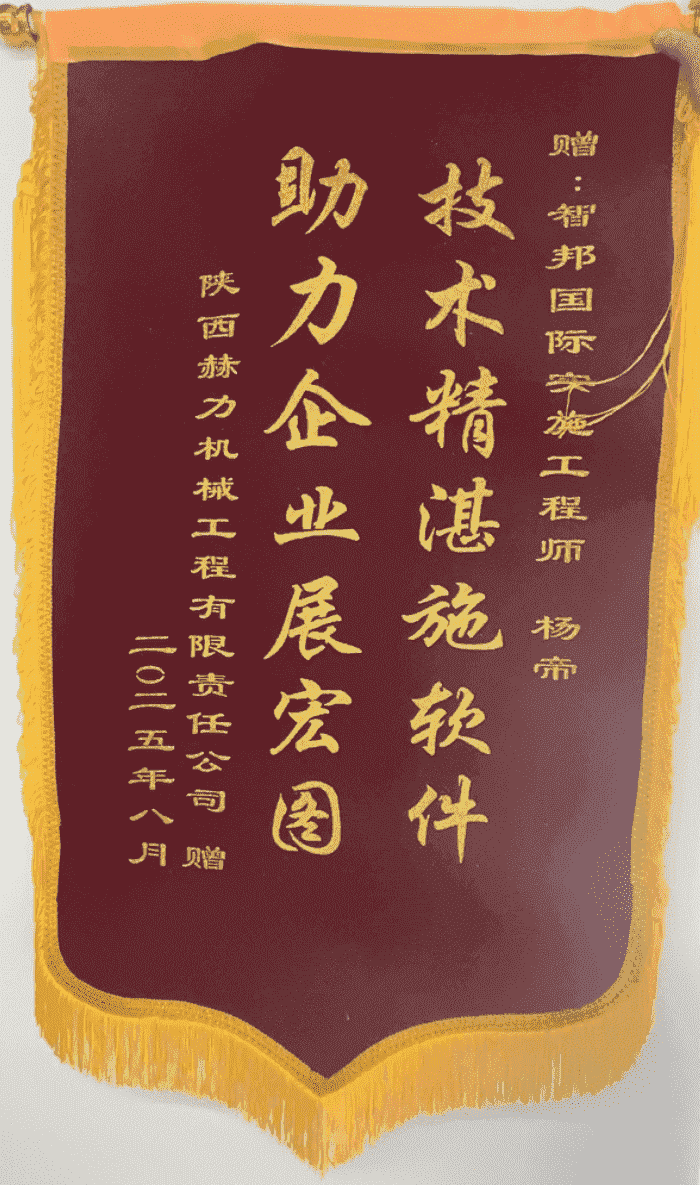 赠：智邦国际实施工程师 杨帝
技术精湛施软件
助力企业展宏图
陕西赫力机械工程有限责任公司 赠
二〇二五年八月